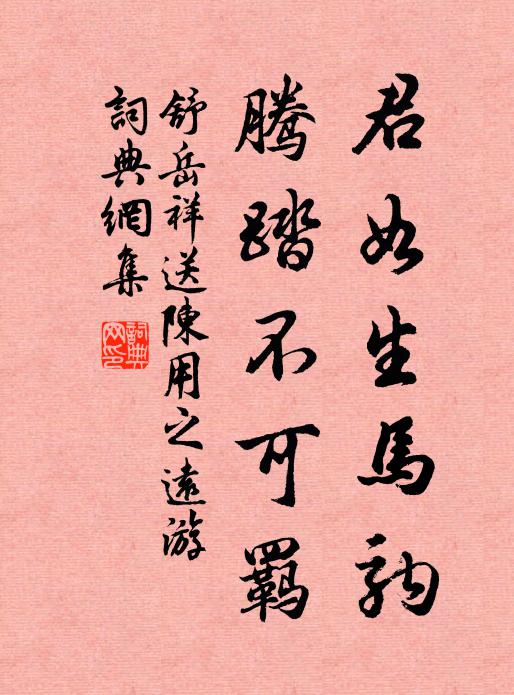 君如生馬駒
騰踏不可羈
舒岳祥送陳用之遠游
詞典網集
詞典網印